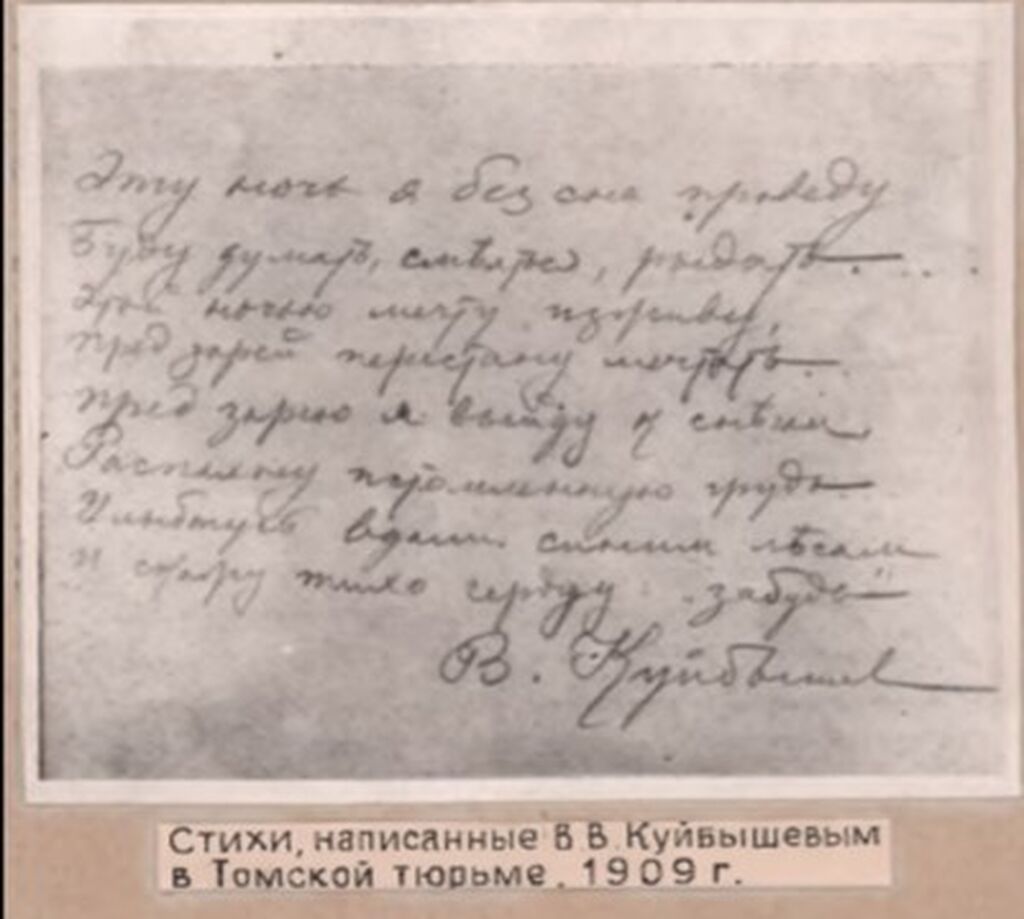 Эту ночь я без сна проведу
Буду думать, смѣяться, рыдать — . . .
Этой ночью мечту изорву,
Пред зарей перестану мечтать — .
Пред зарею я выйду к
Распахну истомленную грудь —
Улыбнусь вдали синим лѣсам
И скажу тихо сердцу: „забудь“ —
В. Куйбышев
Стихи, написанные В В. Куйбышевым
в Томской тюрьме. 1909 г.